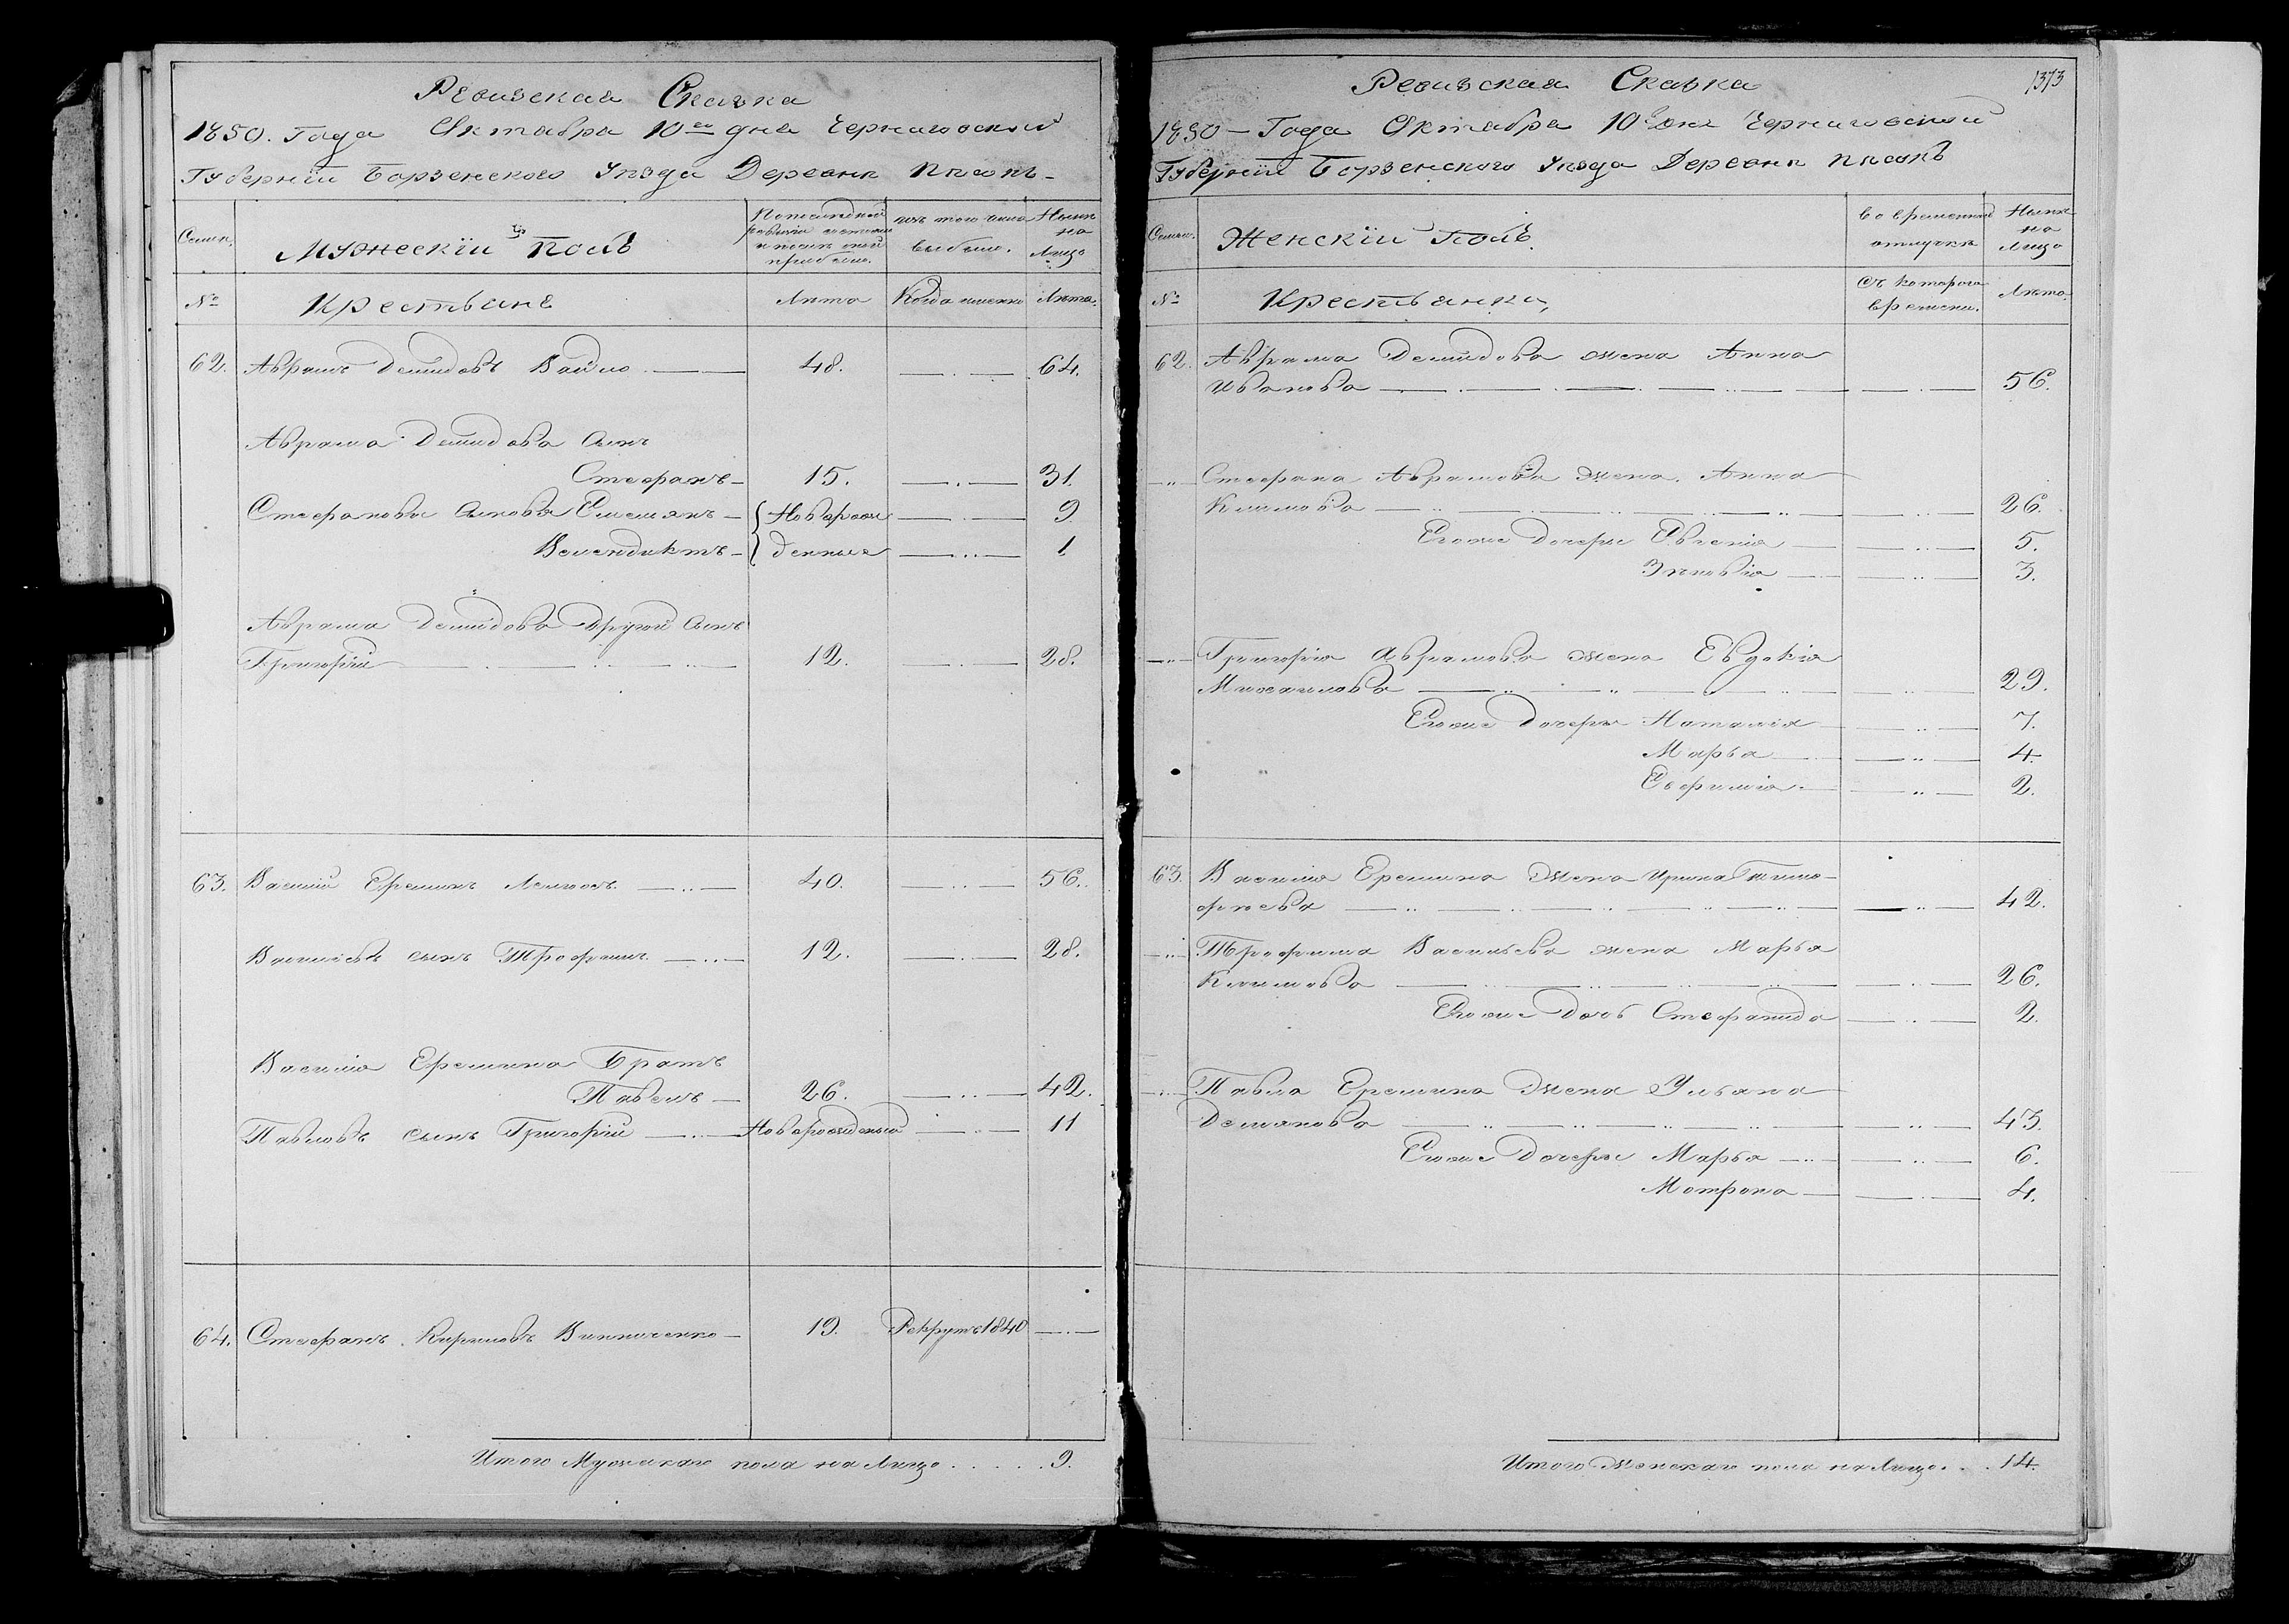 Ревизская Сказка
1850. Года Октября 10го дня Черниговской
Губернїи Борзенскаго Уѣзда Деревни Пѣсокъ
Семьи. Мужескїй Полъ По последней ревизіи состояло и после оной прибыло. изъ того числа выбыло. Нынѣ на Лицо
№ Крестьяне Лѣта Когда именно Лѣта.
62. Аврамъ Демидовъ 48. 64.
Аврама Демидова сынъ
Стефанъ 15. 31.
Стефановы сыновья Емелянъ Новорож 9
Венендиктъ денные 1.
Аврама Демидова Другой сынъ
Григорїй 12. 28.
63. Василій Ереминъ 40. 56.
Васильевъ сынъ Трофимъ 12. 28.
Василія Еремина Братъ
Павелъ 26. 42.
Павловъ сынъ Григорїй Новорожденый 11
64. Стефанъ Кириловъ Винниченко 19. Рекрутъ 1840
Итого Мужскаго пола на Лицо . . . . . 9.
Ревизская Сказка 1373
1850 Года Октября 10 дня Черниговской
Губернїи Борзенского Уѣзда Деревни Пѣсокъ
Семьи. Женскїй Полъ. во временной отлучкѣ Нынѣ на Лицо
№ Крестьянки, Съ котораго времени. Лѣта.
62. Аврама Демидова жена Анна
Иванова 56.
Стефана Аврамова жена Анна
Климова 26.
Егоже Дочери Евгенія 5.
Зѣновія 3.
Григорія Аврамова жена Евдокія
Михаилова 29.
Егоже Дочери Наталія 7.
Марья 4.
Евфимія 2.
63. Василія Еремина Жена Ирина Тимо-
фѣева 42.
Трофима Васильева жена Марья
Климова 26.
Егоже Дочь Стефанида 2.
Павла Еремина Жена Ульяна
Демянова 43.
Егоже Дочери Марья 6.
Мотрона 4.
Итого Женскаго пола на Лицо. . . 14.